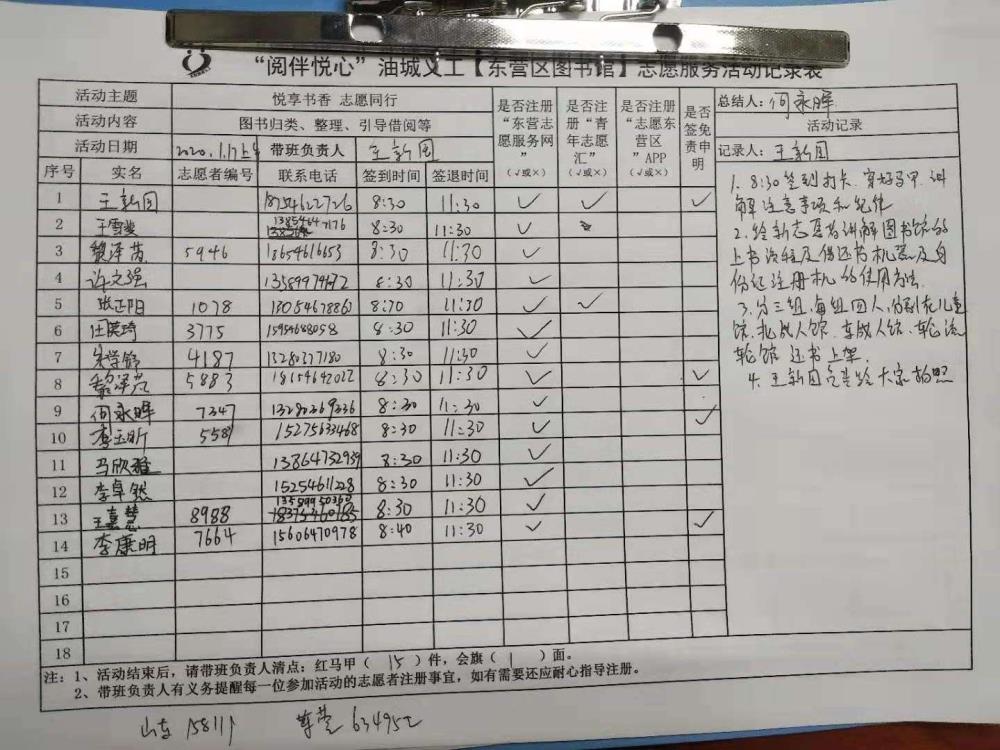 “阅伴悦心”油城义工【东营区图书馆】志愿服务活动记录表
活动主题 悦享书香 志愿同行
活动内容 图书归类、整理、引导借阅等
活动日期 2020.1.17上午 带班负责人 王新团
序号 实名 志愿者编号 联系电话 签到时间 签退时间 是否注册“东营志愿服务网”(√或×) 是否注册“青年志愿汇”(√或×) 是否注册“志愿东营区”APP(√或×) 是否签免责申明
1 王新团 18754622726 8:30 11:30 ✓ ✓ ✓
2 王雪 8:30 11:30 ✓
3 黎泽芮 5946 18654616553 8:30 11:30 ✓
4 许文强 8:30 11:30 ✓
5 张正阳 1078 18054678860 8:30 11:30 ✓ ✓
6 3775 15954688058 8:30 11:30 ✓
7 4187 13280377180 8:30 11:30 ✓
8 黎泽芃 5883 18654642022 8:30 11:30 ✓ ✓
9 何永晖 7347 13280269336 8:30 11:30 ✓
10 李玉昕 5581 15275633468 8:30 11:30 ✓ ✓
11 马欣雅 13864732939 8:30 11:30 ✓
12 李卓然 15254611228 8:30 11:30 ✓
13 王嘉慧 8988 13589950360 8:30 11:30 ✓
14 李康明 7664 15606470978 8:40 11:30 ✓ ✓
15
16
17
18
总结人：何永晖
活动记录
记录人：王新团
1. 8:30签到打卡、穿好马甲、讲
解注意事项和纪律
2. 给新志愿者讲解图书馆的
上书流程及借还书机器及身
份证注册机的使用方法.
3. 分三组,每组四人,分别在儿童
馆、北成人馆、东成人馆、轮流
轮馆 还书上架.
4. 王新团负责给大家拍照
注：1、活动结束后，请带班负责人清点：红马甲（ 15 ）件，会旗（ 1 ）面。
2、带班负责人有义务提醒每一位参加活动的志愿者注册事宜，如有需要还应耐心指导注册。
山东 158111 东营 634952